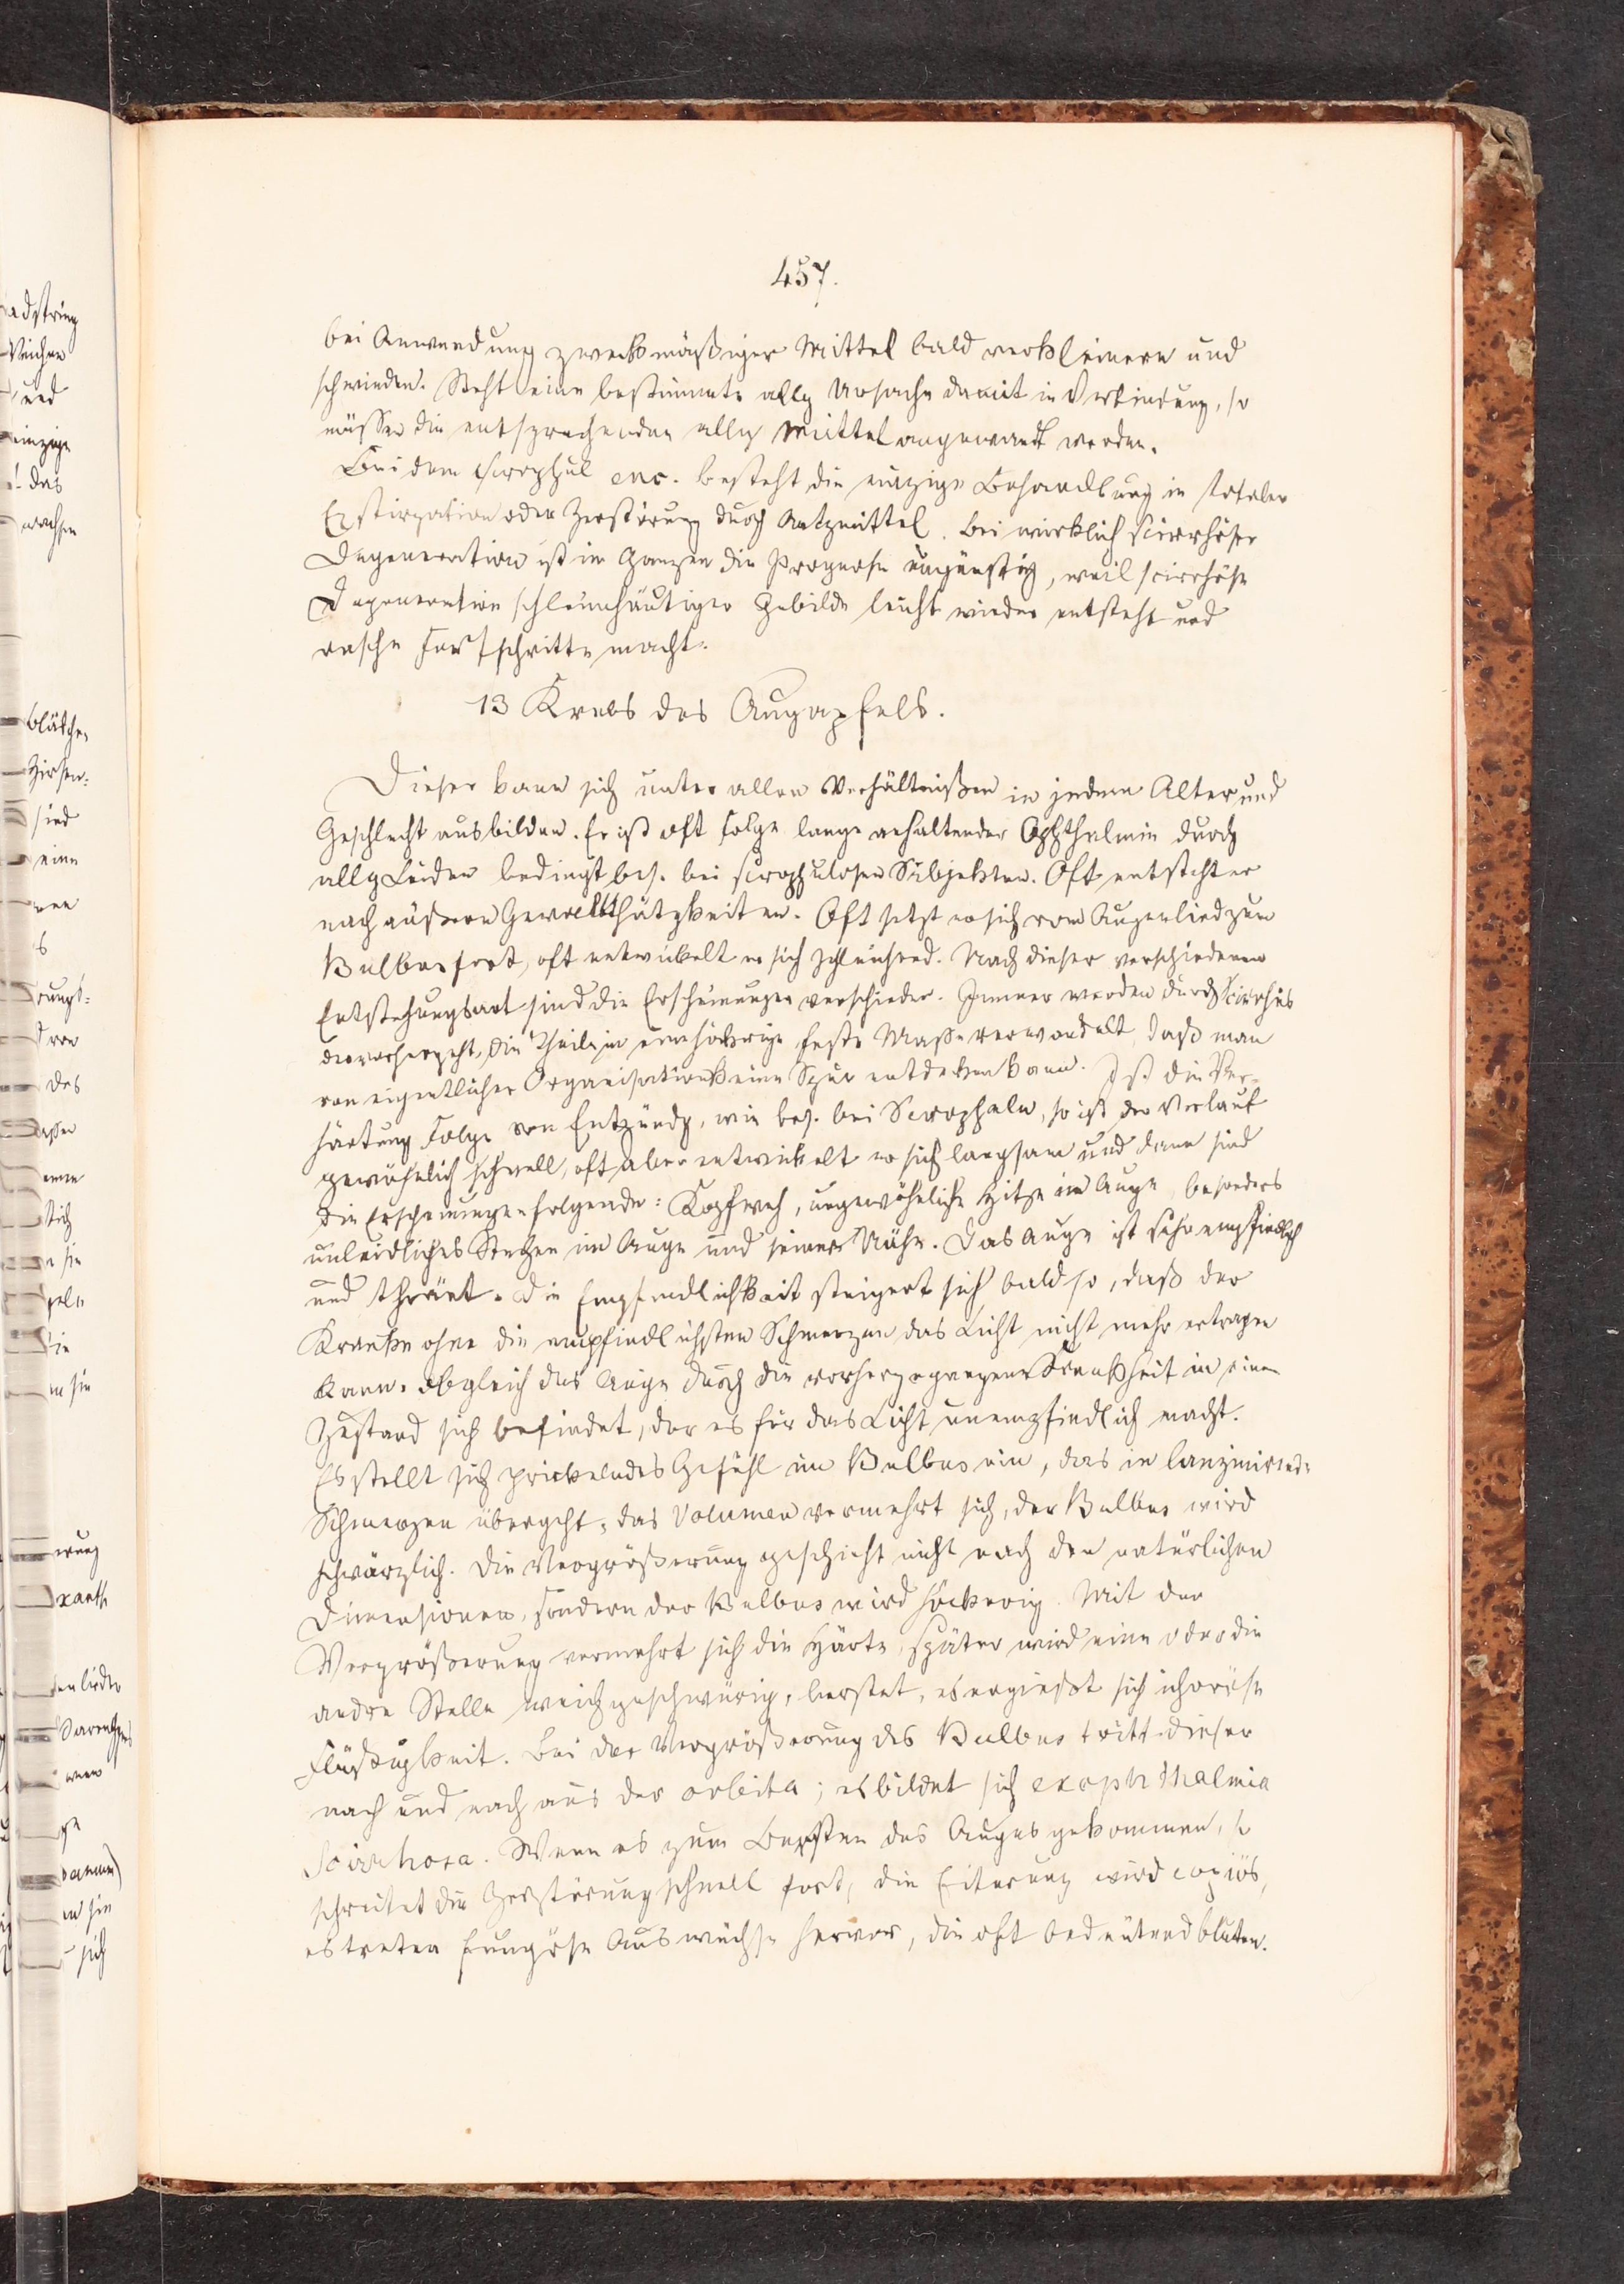 457.
bei Anwendung zweckmäßiger Mittel bald verkleinern und
schwinden. Steht eine bestimmte allg Ursache damit in Verbindung, so
müssen die entsprechenden allg Mittel angewandt werden.
Bei dem besteht die einzige Behandlung in totaler
Exstirpation oder Zerstörung durch Aetzmittel. Bei wirklich scirrhöser
Degeneration ist im Ganzen die Prognose ungünstig, weil scirrhöse
Degeneration schleimhäutiger Gebilde leicht wieder entsteht und
rasche Fortschritte macht.
13 Krebs des Augapfels.
Dieser kann sich unter allen Verhältnißen in jedem Alter und
Geschlecht ausbilden. Er ist oft Folge lange anhaltender Ophthalmie durch
allg Leiden bedingt bes. bei scrophulosen Subjekten. Oft entsteht er
nach äußern Gewaltthätgkeiten. Oft setzt er sich vom Augenlied zum
Bulbus fort, oft entwickelt er sich schleichend. Nach dieser verschiedenen
Entstehungsart sind die Erscheinungen verschieden. Immer werden durch Scirrhus
der vorhergeht, die Theile in eine höckrige feste Masse verwandelt, daß man
von eigentlicher Organisation keine Spur entdecken kann. Ist die Ver-
härtung Folge von Entzündg, wie bes. bei Scropheln, so ist der Verlauf
gewöhnlich schnell, oft aber entwickelt er sich langsam und dann sind
die Erscheinungen folgende: Kopfweh, ungewöhnliche Hitze im Auge, besonders
unleidliches Stechen im Auge und seiner Nähe. Das Auge ist sehr empfindlich
und thränt. Die Empfindlichkeit steigert sich bald so, daß der
Kranke ohne die empfindlichsten Schmerzen das Licht nicht mehr ertragen
kann. Obgleich das Auge durch die vorhergegangene Krankheit in einem
Zustand sich befindet, der es für das Licht unempfindlich macht.
Es stellt sich prickelndes Gefühl im Bulbus ein, das in lanzinirende
Schmerzen übergeht, das Volumen vermehrt sich, der Bulbus wird
schwärzlich. Die Vergrößerung geschieht nicht nach den natürlichen
Dimensionen, sondern der Bulbus wird höckerig. Mit der
Vergrößerung vermehrt sich die Härte, später wird eine oder die
andre Stelle weich geschwürig, berstet, es ergießt sich ichoröse
Flüßigkeit. Bei der Vergrößerung des Bulbus tritt dieser
nach und nach aus der orbita; es bildet sich exophthalmia
Scirrhosa. Wenn es zum Bersten des Auges gekommen, so
schreitet die Zerstörung schnell fort, die Eiterung wird copiös,
es treten fungöse Auswüchse hervor, die oft bedeutend bluten.